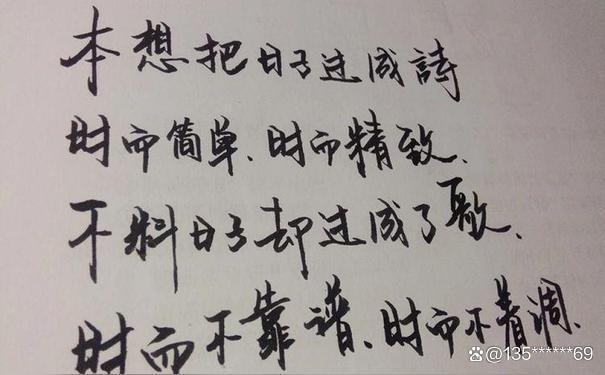 本想把日子过成詩
时而简单、时而精致、
不料日子却过成了歌、
时而不靠谱、时而不着调、
@135******69